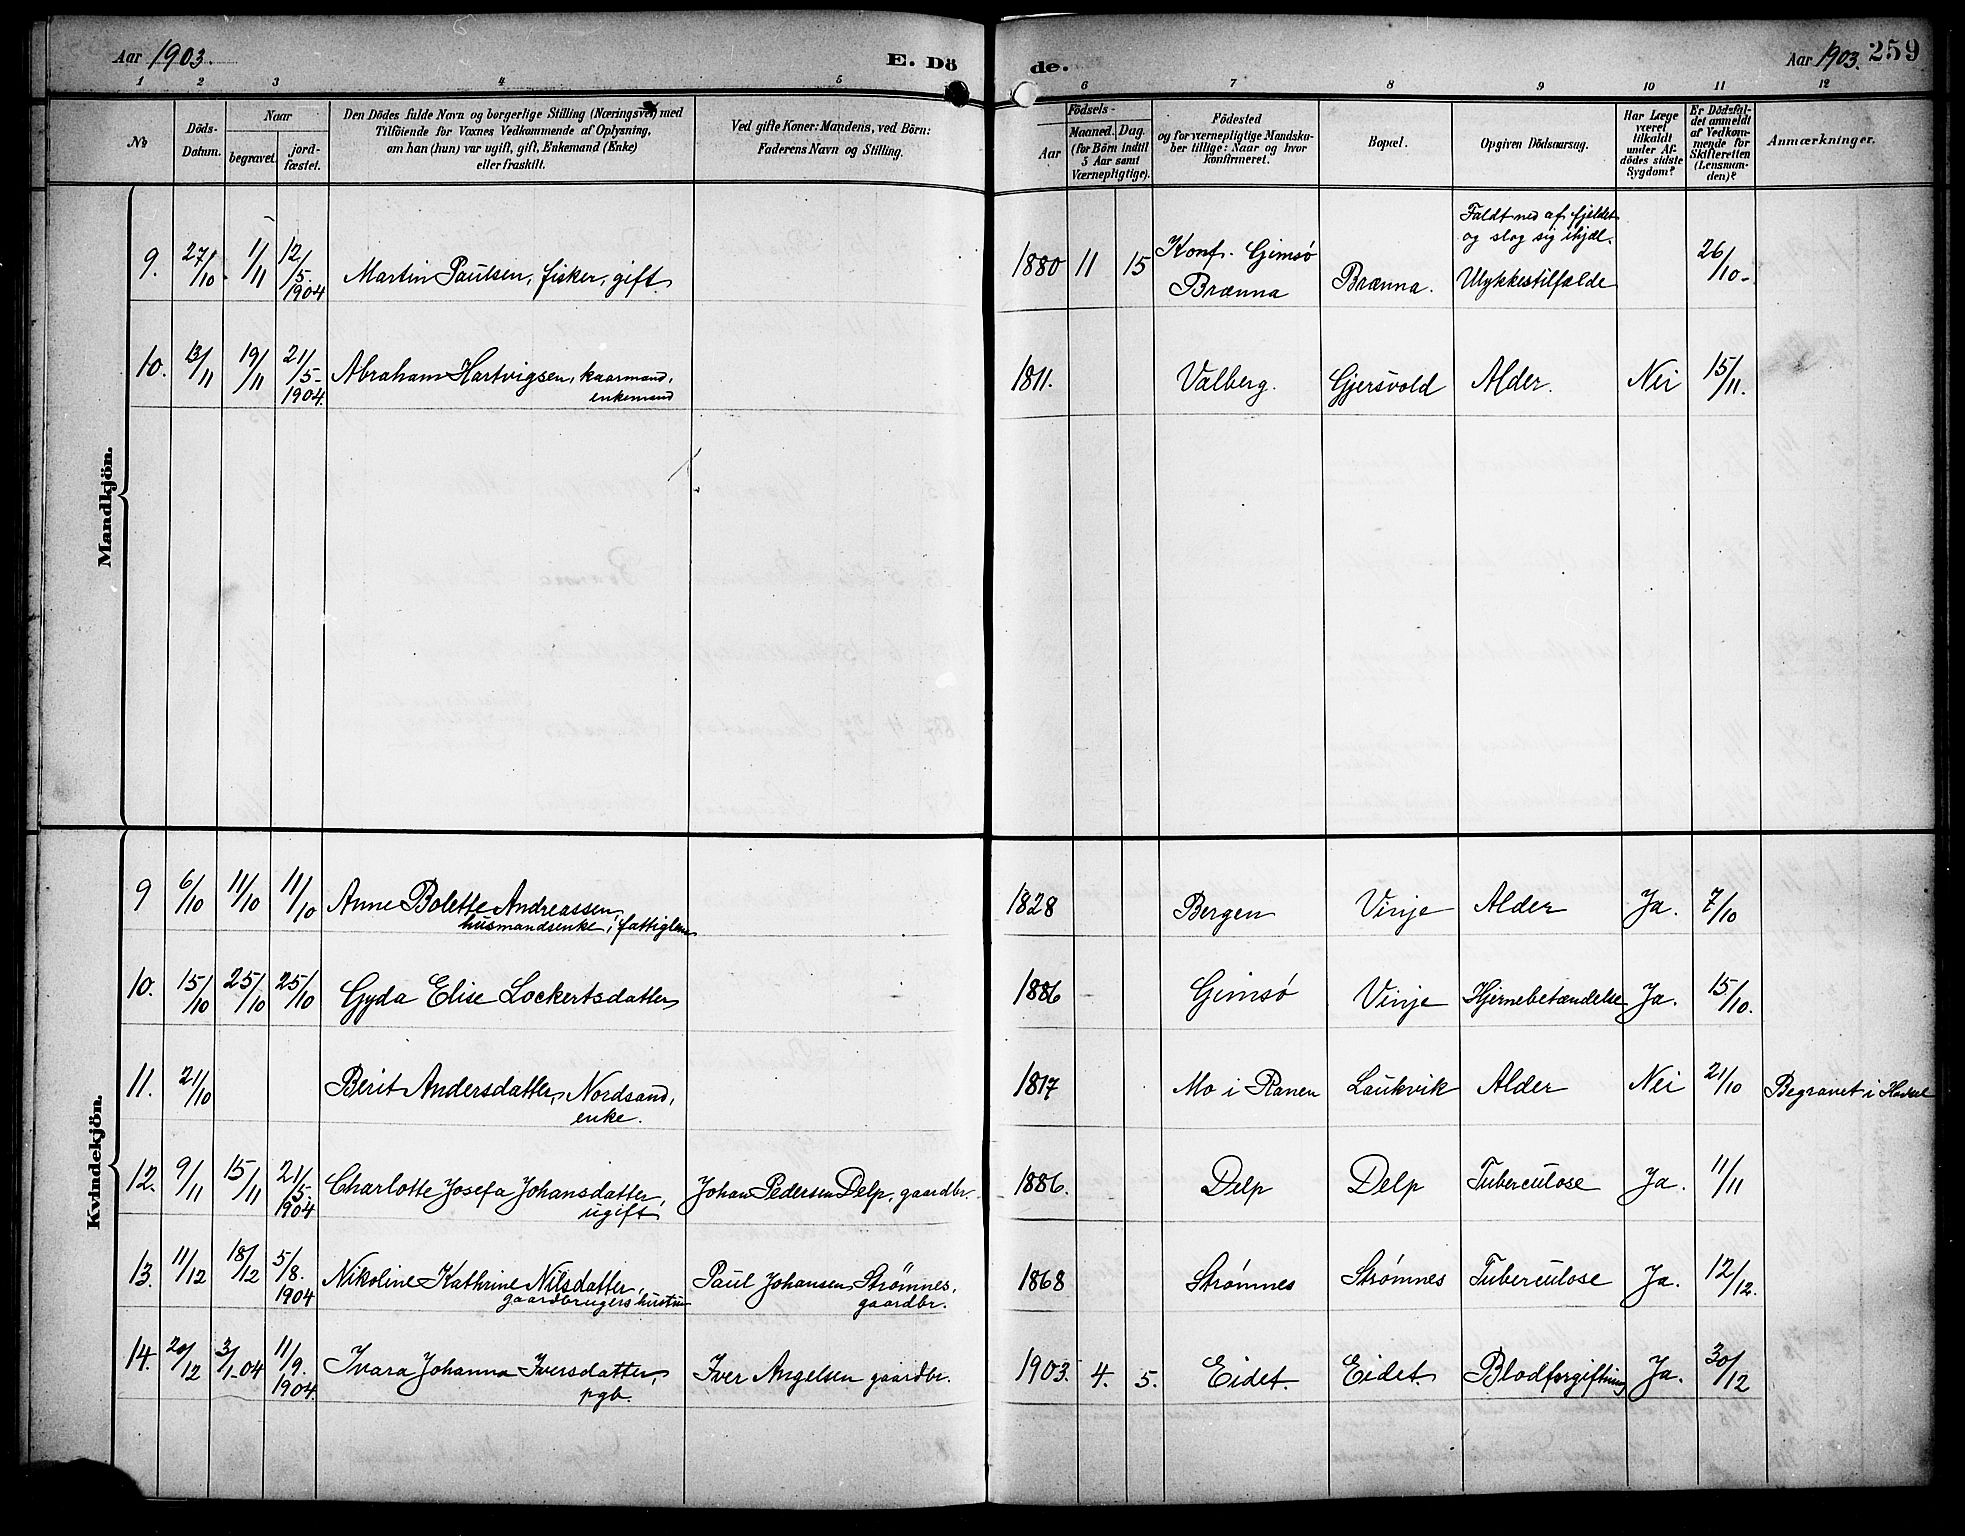 Aar 1903.
E. Dö
de.
Aar 1903.
259
1 2 3 4 5 6 7 8 9 10 11 12
No
Döds-
Datum.
Naar
begravet.
jord-
fæstet.
Den Dödes fulde Navn og borgerlige Stilling (Næringsvei) med
Tilföiende for Voxnes Vedkommende af Oplysning,
om han (hun) var ugift, gift, Enkemand (Enke)
eller fraskilt.
Ved gifte Koner: Mandens, ved Börn:
Faderens Navn og Stilling.
Födsels-
Aar
Maaned. Dag.
(for Börn indtil
5 Aar samt
Værnepligtige).
Födested
og for værnepligtige Mandska-
ber tillige: Naar og hvor
konfirmeret.
Bopæl.
Opgiven Dödsaarsag.
Har Læge
været
tilkaldt
under Af-
dödes sidste
Sygdom?
Er Dödsfal-
det anmeldt
af Vedkom-
mende for
Skifteretten
(Lensman-
den)?
Anmærkninger.
Mandkjön.
9. 27/10. 1/11 12/5. 1904 Martin Paulsen, fisker, gift. 1880 11 15 Konf. Gimsø Brænna Brænna. Faldt ned af fjeldet og slog sig ihjæl. Ulykkestilfælde 26/10-
10. 13/11 19/11 21/5- 1904. Abraham Hartvigsen, kaarmand, enkemand 1811. Valberg. Gjersvold Alder. Nei 15/11.
Kvindekjön.
9 6/10 11/10 11/10 Anne Bolette Andreassen, husmandsenke, fattiglem 1828 Bergen Vinje Alder Ja. 7/10
10. 15/10 25/10 25/10 Gyda Elise Lockertsdatter 1886 Gimsø Vinje Hjernebetændelse Ja. 15/10.
11. 21/10 Berit Andersdatter, Nordsand, enke. 1817 Mo i Ranen Laukvik Alder Nei 21/10 Begravet i
12. 9/11 15/11 21/5. 1904 Charlotte Josefa Johansdatter, ugift Johan Pedersen Delp, gaardbr. 1886. Delp Delp Tuberculose Ja. 11/11
13. 11/12 18/12 5/8. 1904 Nikoline Kathrine Nilsdatter, gaardbrugers hustru Paul Johansen Strømnes, gaardbr. 1868 Strømnes Strømnes Tuberculose Ja. 12/12.
14. 20/12 3/1-04 11/9. 1904. Ivara Johanna Iversdatter, pgb. Iver Angelsen gaardbr. 1903. 4. 5. Eidet. Eidet. Blodforgiftning Ja. 30/12